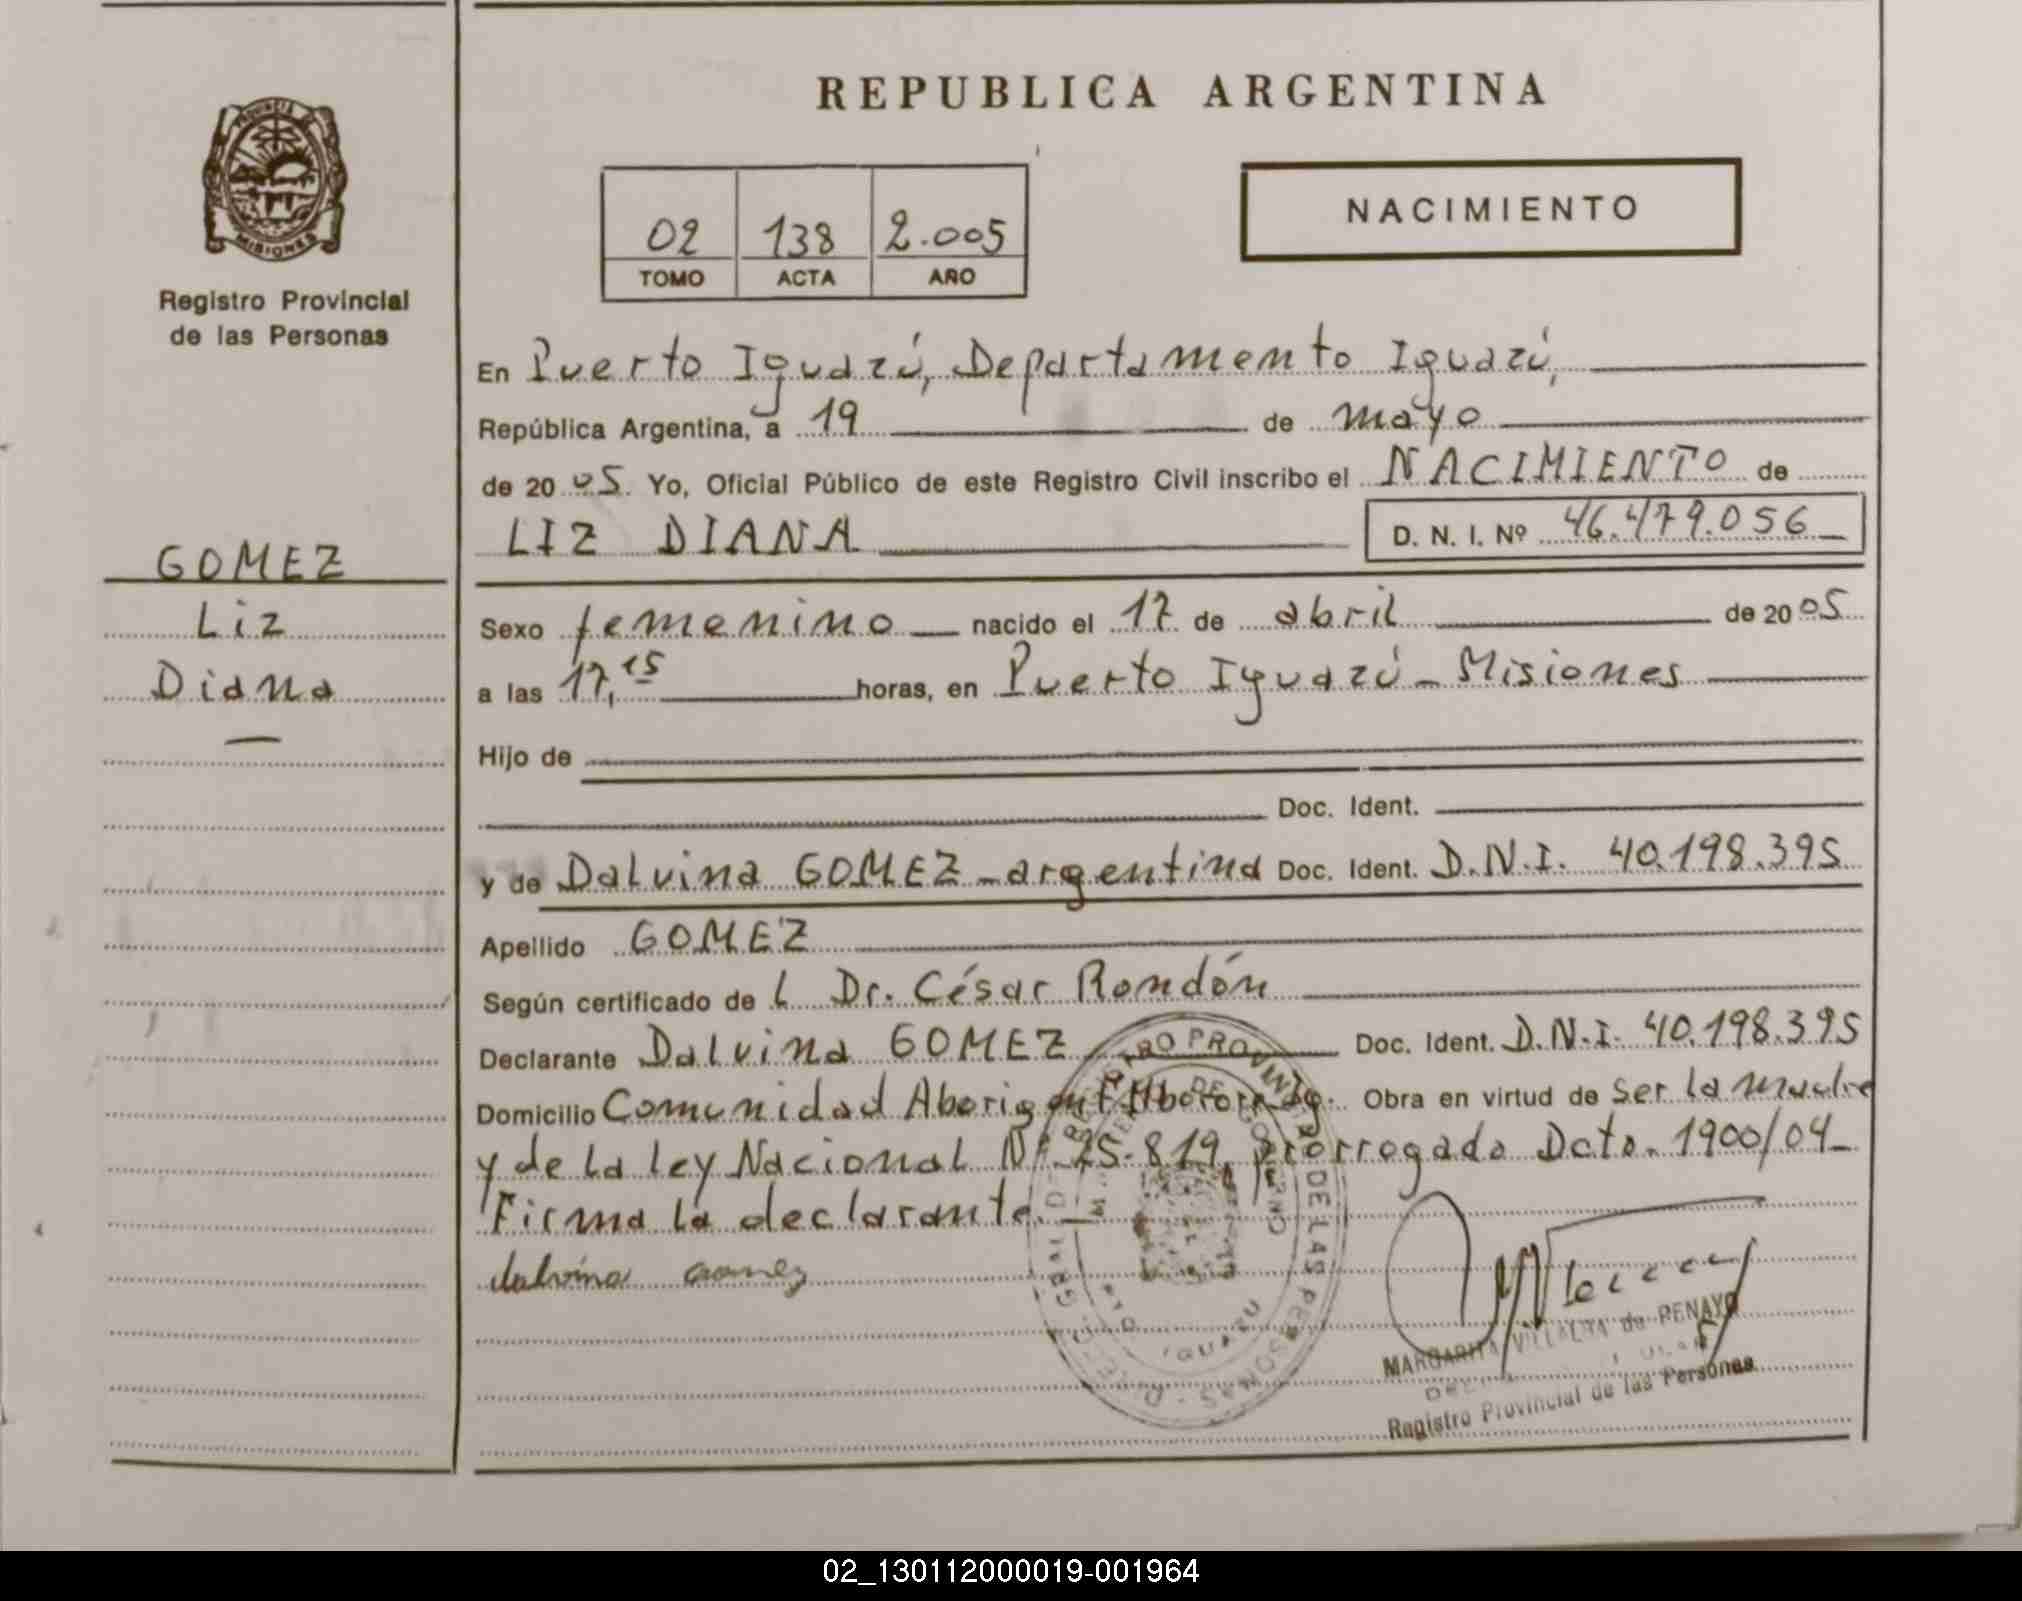 REPUBLICA ARGENTINA
PROVINCIA DE
MISIONES
Registro Provincial
de las Personas
02 138 2.005
TOMO ACTA AÑO
NACIMIENTO
En Puerto Iguazú, Departamento Iguazú,
República Argentina, a 19 de mayo
de 2005. Yo, Oficial Público de este Registro Civil inscribo el NACIMIENTO de
LIZ DIANA D. N. I. Nº 46.479.056
GOMEZ
Liz
Diana
Sexo femenino nacido el 17 de abril de 2005
a las 17,15 horas, en Puerto Iguazú - Misiones
Hijo de
Doc. Ident.
y de Dalvina GOMEZ - argentina Doc. Ident. D.N.I. 40.198.395
Apellido GOMEZ
Según certificado del Dr. César Rondón
Declarante Dalvina GOMEZ Doc. Ident. D.N.I. 40.198.395
Domicilio Comunidad Aborigen Obra en virtud de ser la madre
y de la ley Nacional Nº 25.819, prorrogado Dcto. 1900/04
Firma la declarante.
dalvina gomez
REGISTRO PROVINCIAL DE LAS PERSONAS
IGUAZU
MARGARITA VILLALBA de PENAYO
Registro Provincial de las Personas
02_130112000019-001964